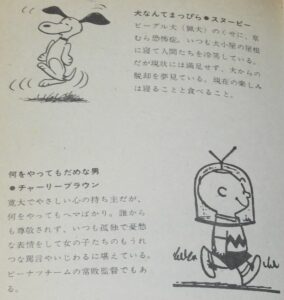 犬なんてまっぴら●スヌーピー
ビーグル犬(猟犬)のくせに、草
むら恐怖症。いつも犬小屋の屋根
に寝て人間たちを冷笑している。
だが現状には満足せず、犬からの
脱却を夢見ている。現在の楽しみ
は寝ることと食べること。
何をやってもだめな男
●チャーリーブラウン
寛大でやさしい心の持ち主だが、
何をやってもヘマばかり。誰から
も尊敬されず、いつも孤独で憂愁
な表情をして女の子たちのもうれ
つな罵言やいじわるに堪えている。
ピーナツチームの常敗監督でもあ
る。